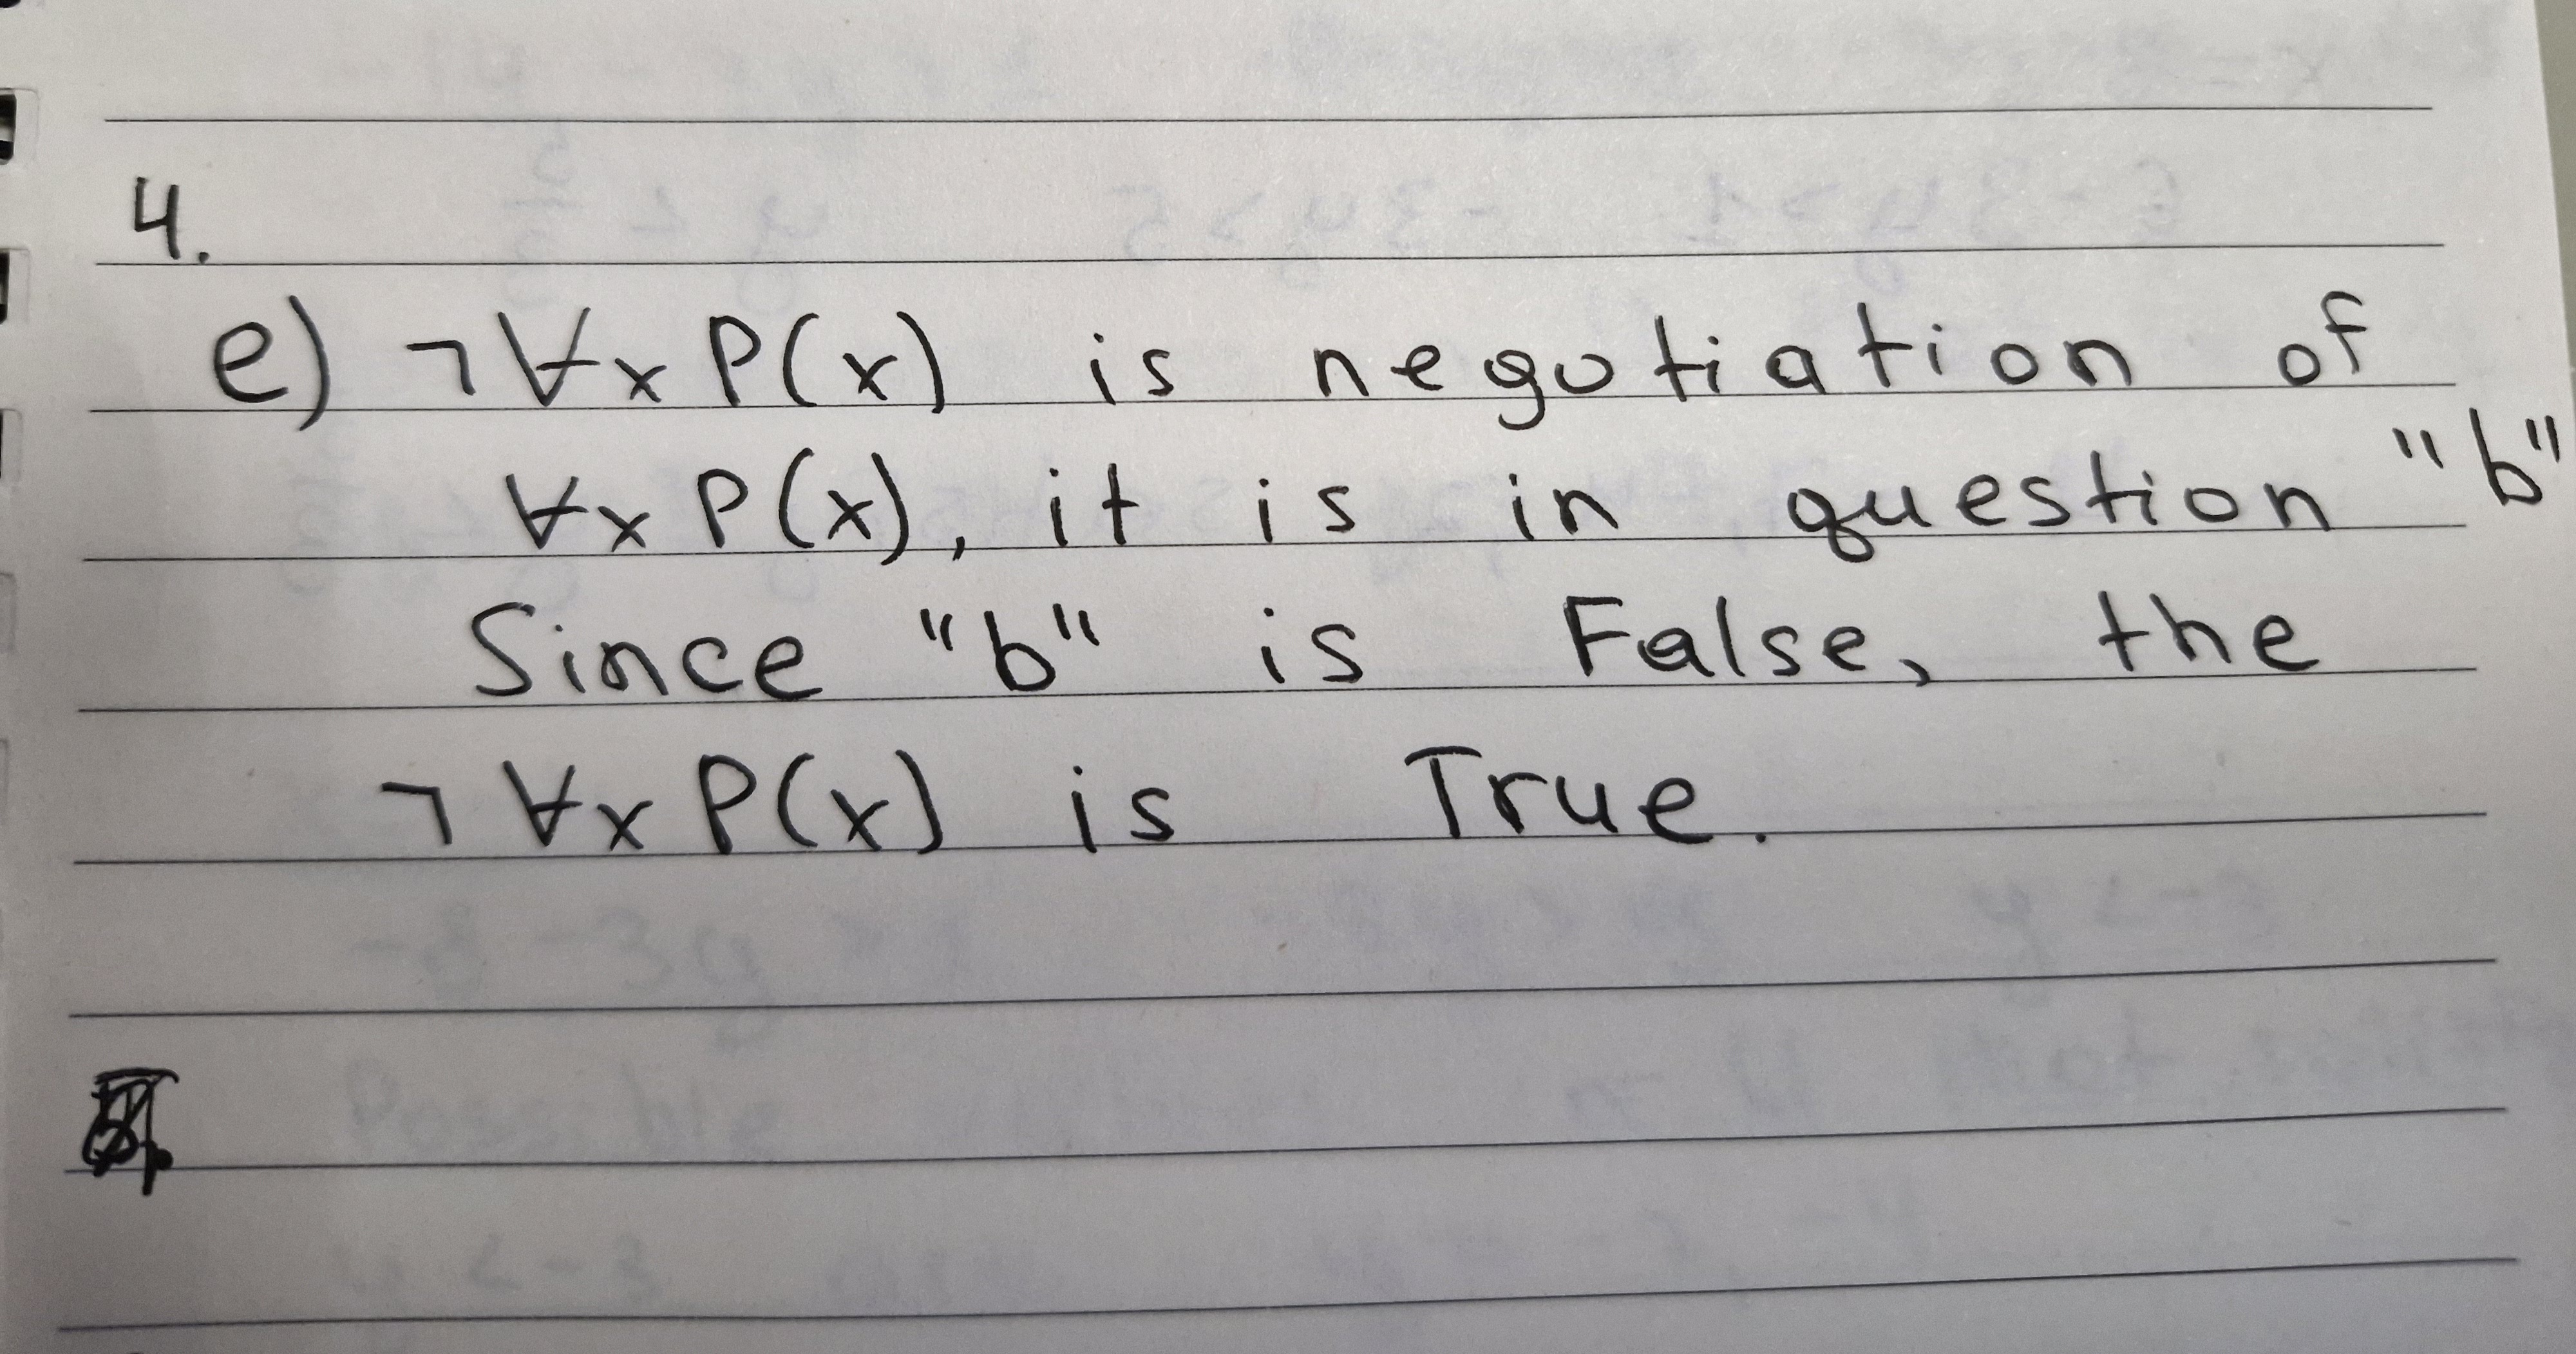 4.
e) ¬∀x P(x) is negotiation of
∀x P(x), it is in question "b"
Since "b" is False, the
¬∀x P(x) is True.